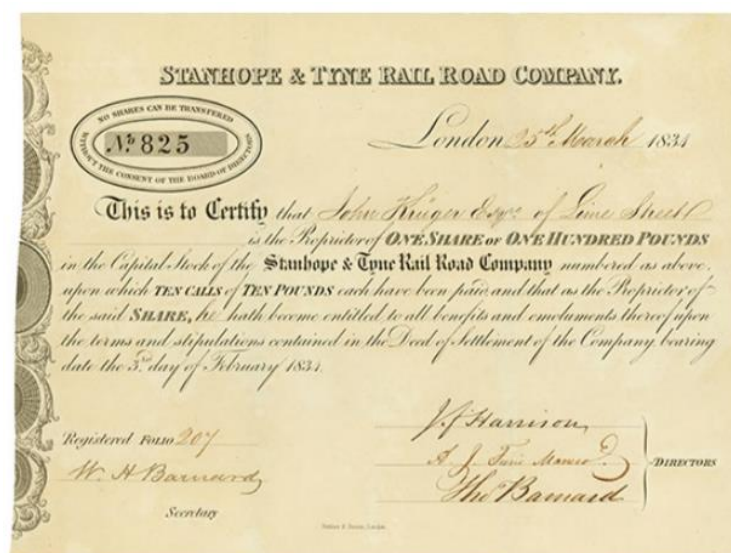 STANHOPE & TYNE RAIL ROAD COMPANY.
NO SHARES CAN BE TRANSFERRED
WITHOUT THE CONSENT OF THE BOARD OF DIRECTORS
No. 825
London 25th March 1834
This is to Certify that John Krüger Esqre of Lime Street
is the Proprietor of ONE SHARE OF ONE HUNDRED POUNDS
in the Capital Stock of the Stanhope & Tyne Rail Road Company numbered as above,
upon which TEN CALLS of TEN POUNDS each have been paid and that as the Proprietor of
the said SHARE, he hath become entitled to all benefits and emoluments thereof upon
the terms and stipulations contained in the Deed of Settlement of the Company, bearing
date the 3rd day of February 1834.
Registered FOLIO 207
W. H Barnard
Secretary
Harrison
A. J.
Tho Barnard
DIRECTORS